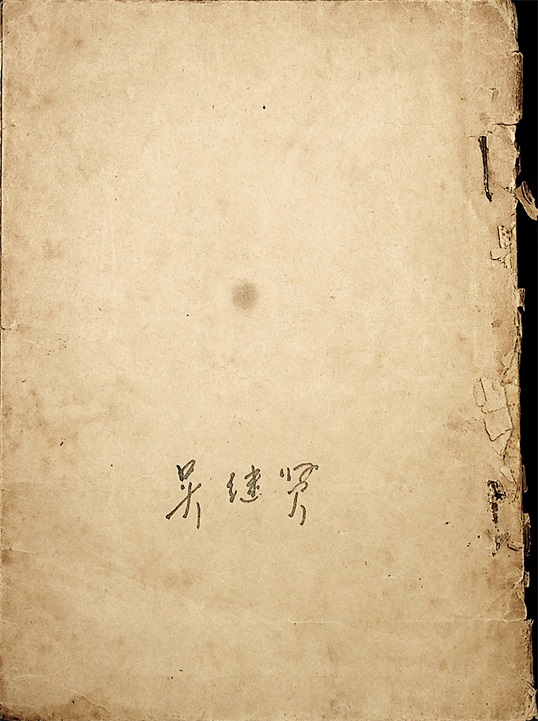 吴继贤